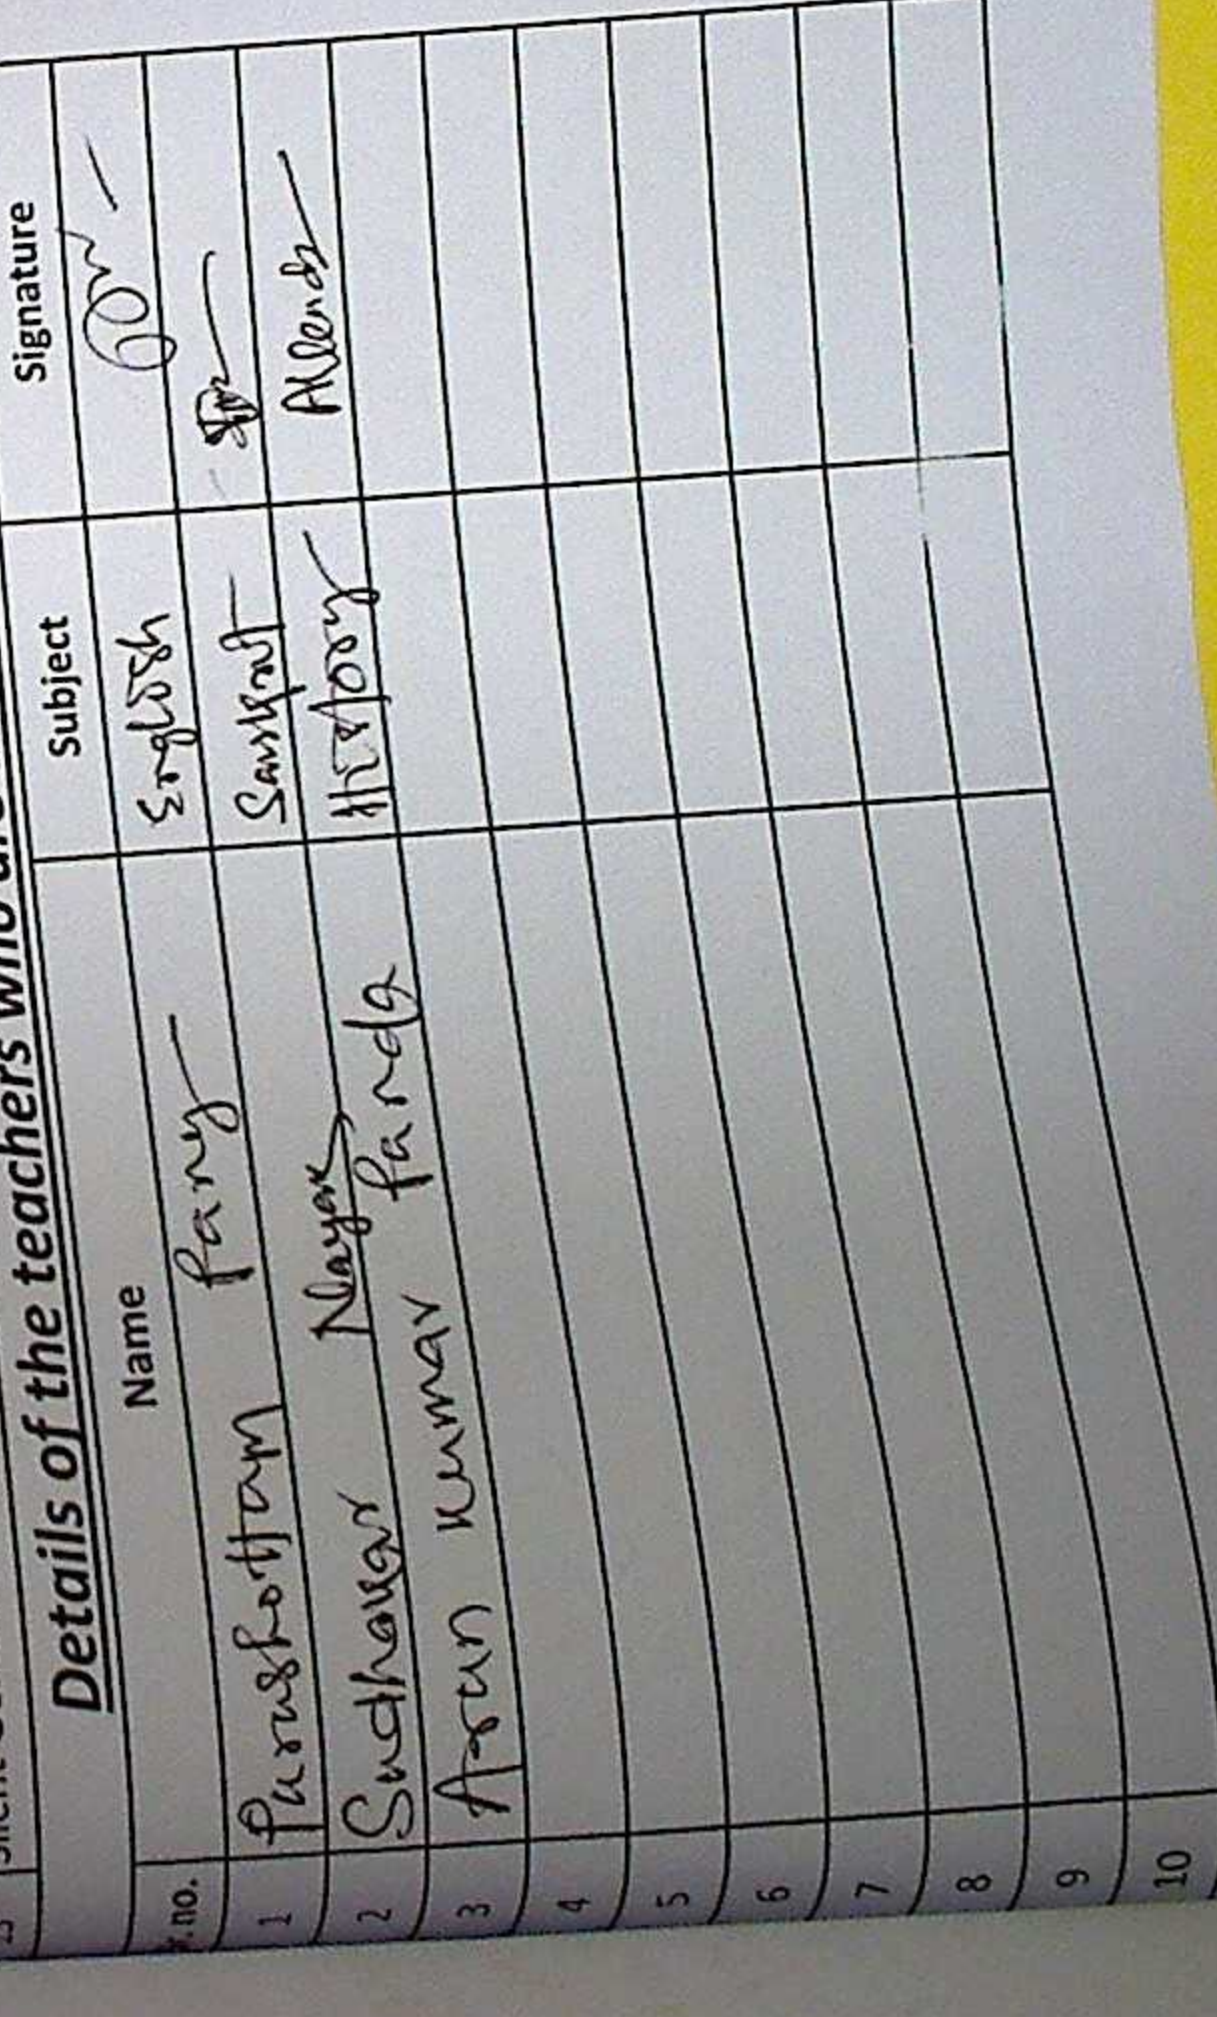 Details of the teachers who
r.no. Name Subject Signature
1 Purushottam Pany English
2 Sudhakar Nayak Sanskrit
3 Arun Kumar Panda History
4
5
6
7
8
9
10